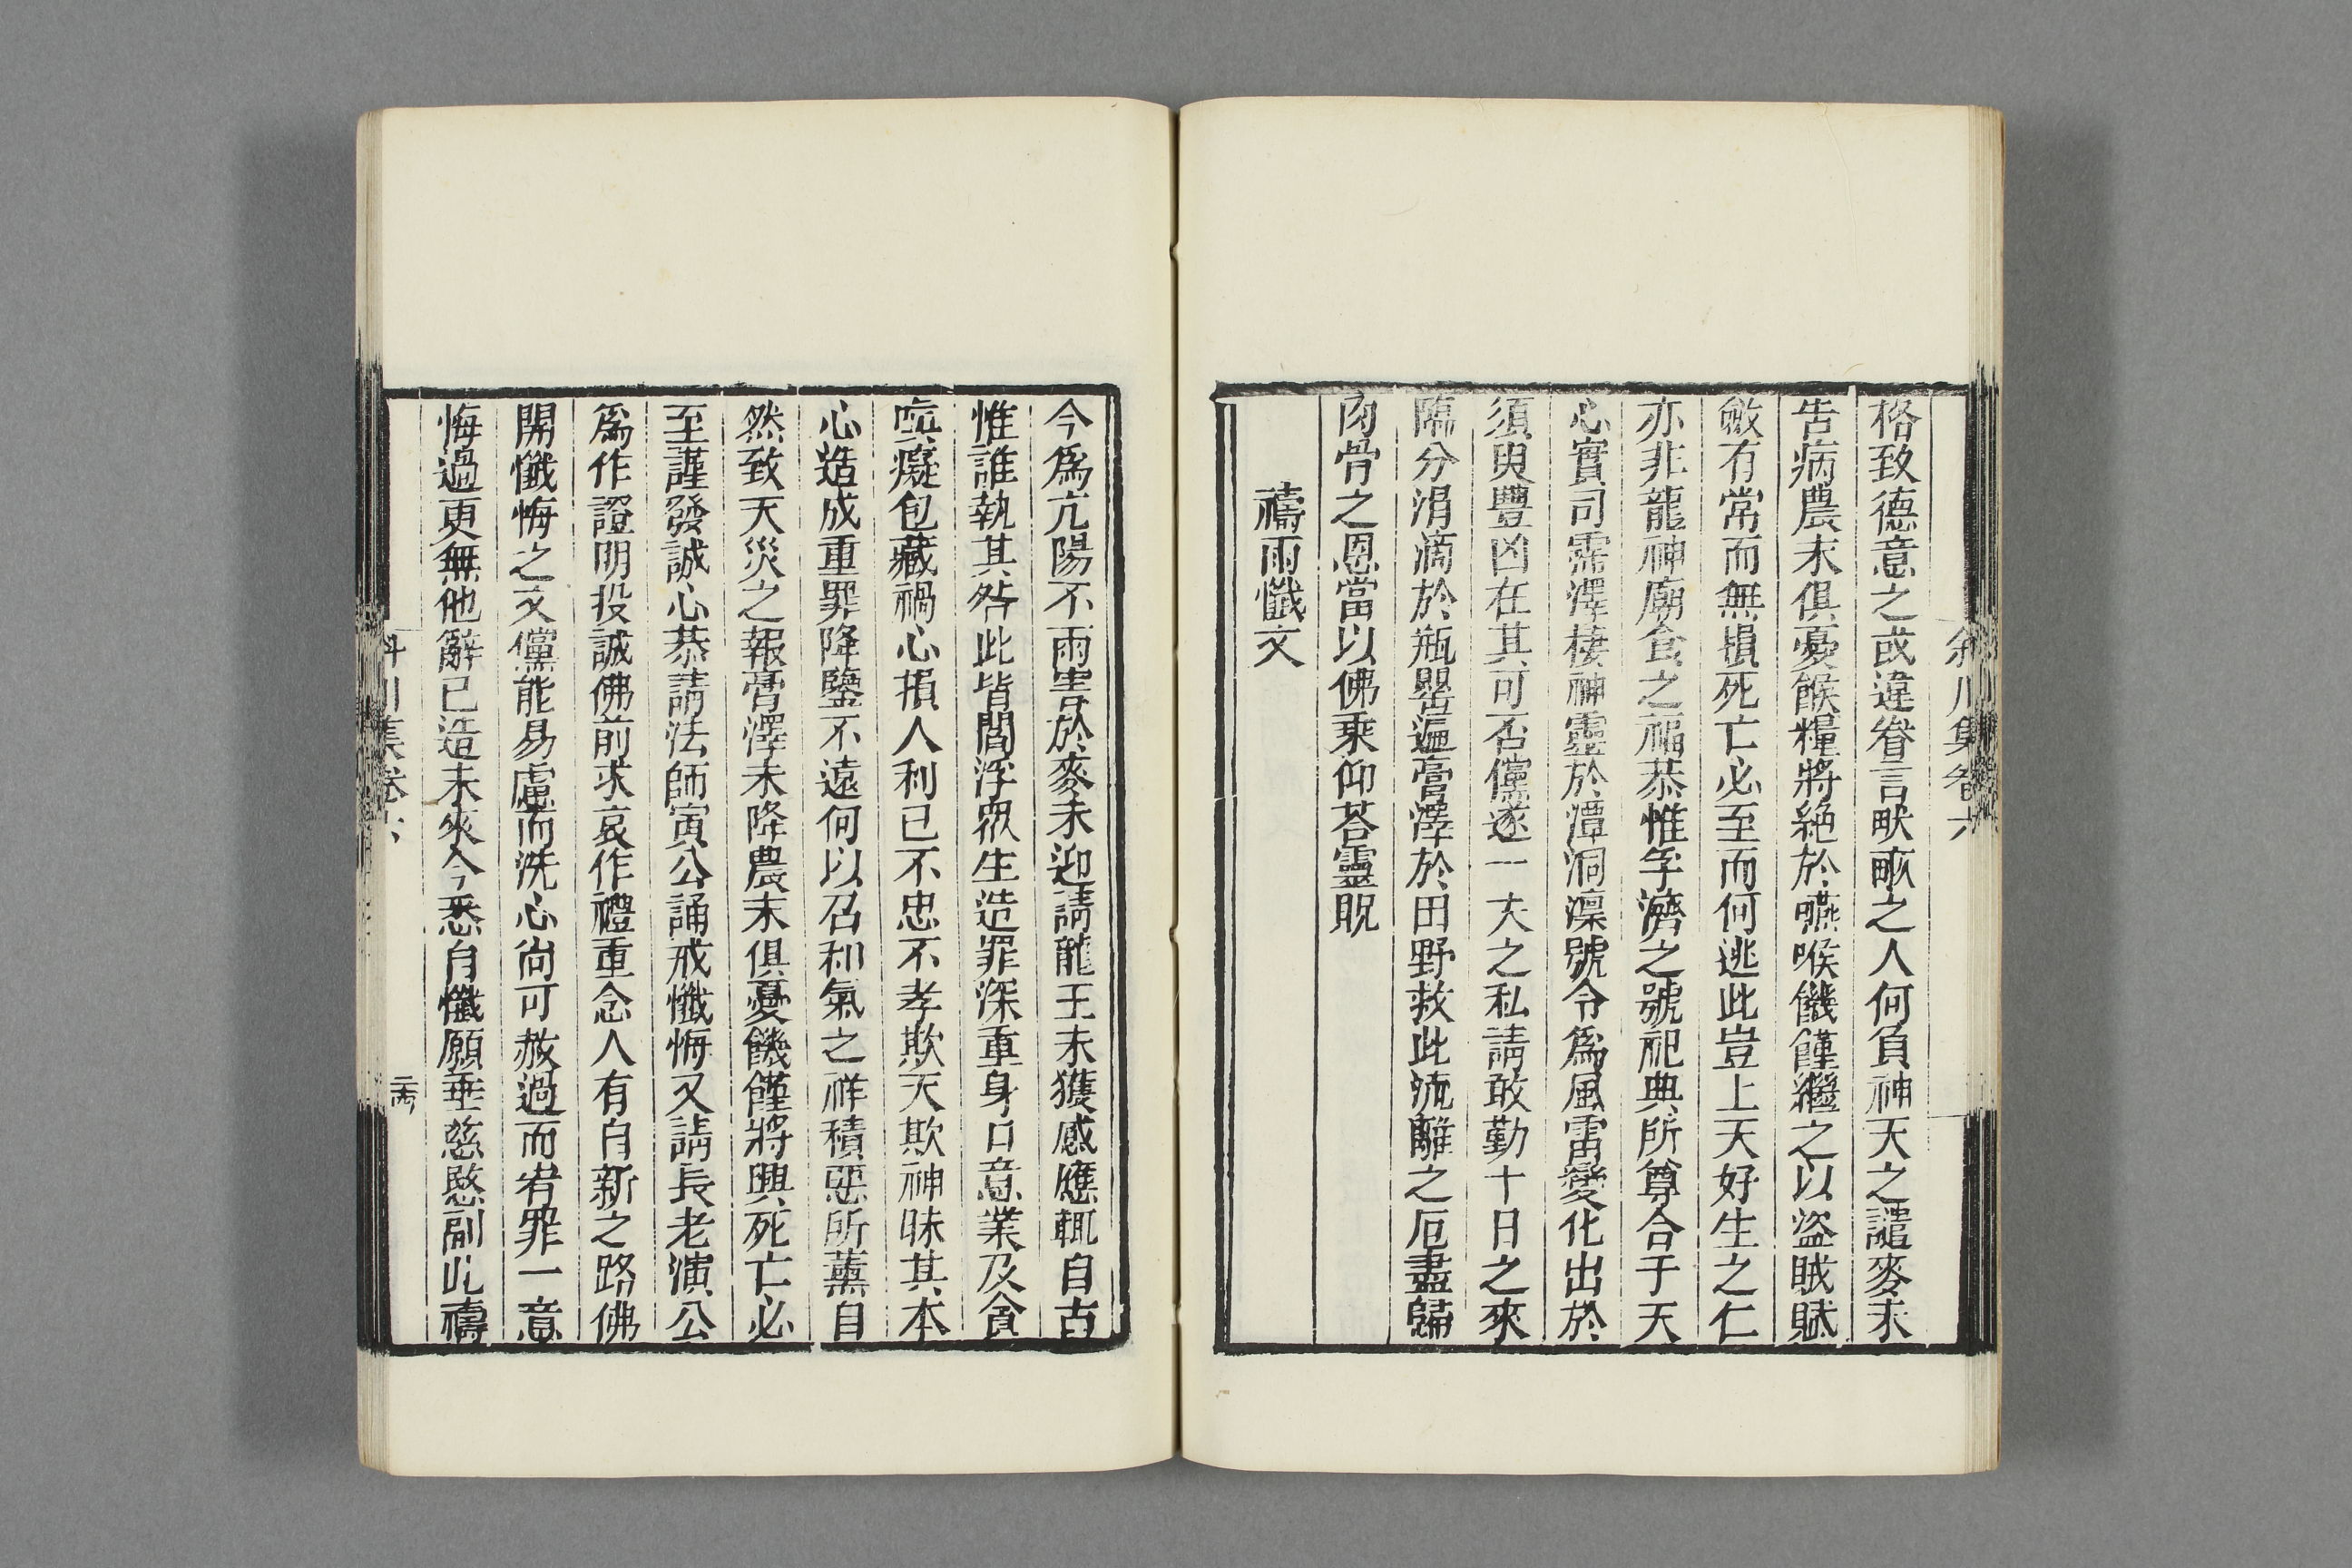 格致德意之或違眷言畎畝之人何負神天之譴麥未
告病農末俱憂餱糧將絶於嚥喉饑饉繼之以盜賊賦
斂有常而無損死亡必至而何逃此豈上天好生之仁
亦非龍神廟食之福恭惟孚濟之號祀典所尊合于天
心實司霈澤棲神靈於潭洞凜號令爲風雷變化出於
須臾豐凶在其可否儻遂一夫之私請敢勤十日之來
臨分涓滴於瓶罌遍膏澤於田野救此流離之厄盡歸
肉骨之恩當以佛乘仰荅靈貺
禱雨懺文
今爲亢陽不雨害於麥未迎請龍王未獲感應輒自古
惟誰執其咎此皆閻浮衆生造罪深重身口意業及貪
嗔癡包藏禍心損人利己不忠不孝欺天欺神昧其本
心造成重罪降鑒不遠何以召和氣之祥積惡所薰自
然致天災之報膏澤未降農末俱憂饑饉將興死亡必
至謹發誠心恭請法師寅公誦戒懺悔又請長老演公
爲作證明投誠佛前求哀作禮重念人有自新之路佛
開懺悔之文儻能易慮而洗心尚可赦過而宥罪一意
悔過更無他辭已造未來今悉自懺願垂慈愍副此禱
斜川集卷六